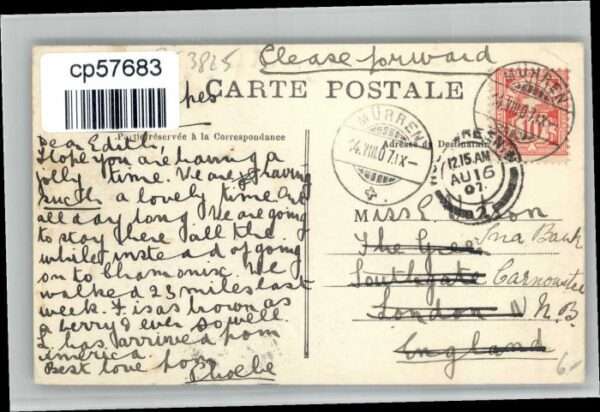 3825
Please forward
cp57683
CARTE POSTALE
Partie réservée à la Correspondance
Adresse du Destinataire
MÜRREN
14.VIII.07.IX-
MÜRREN
12.15.AM
AU 16
07
Dear Edith,
I hope you are having a
jolly time. We are having
such a lovely time. Out
all day long. We are going
to stay here all the
while instead of going
on to Chamonix. We
walked 23 miles last
week. F. is as brown as
a berry & ever so well.
L. has arrived from
America.
Best love from
Phoebe
Miss E.
The Green
Ina Bank
Southgate
Carnoustie
London N
N.B.
England
6-